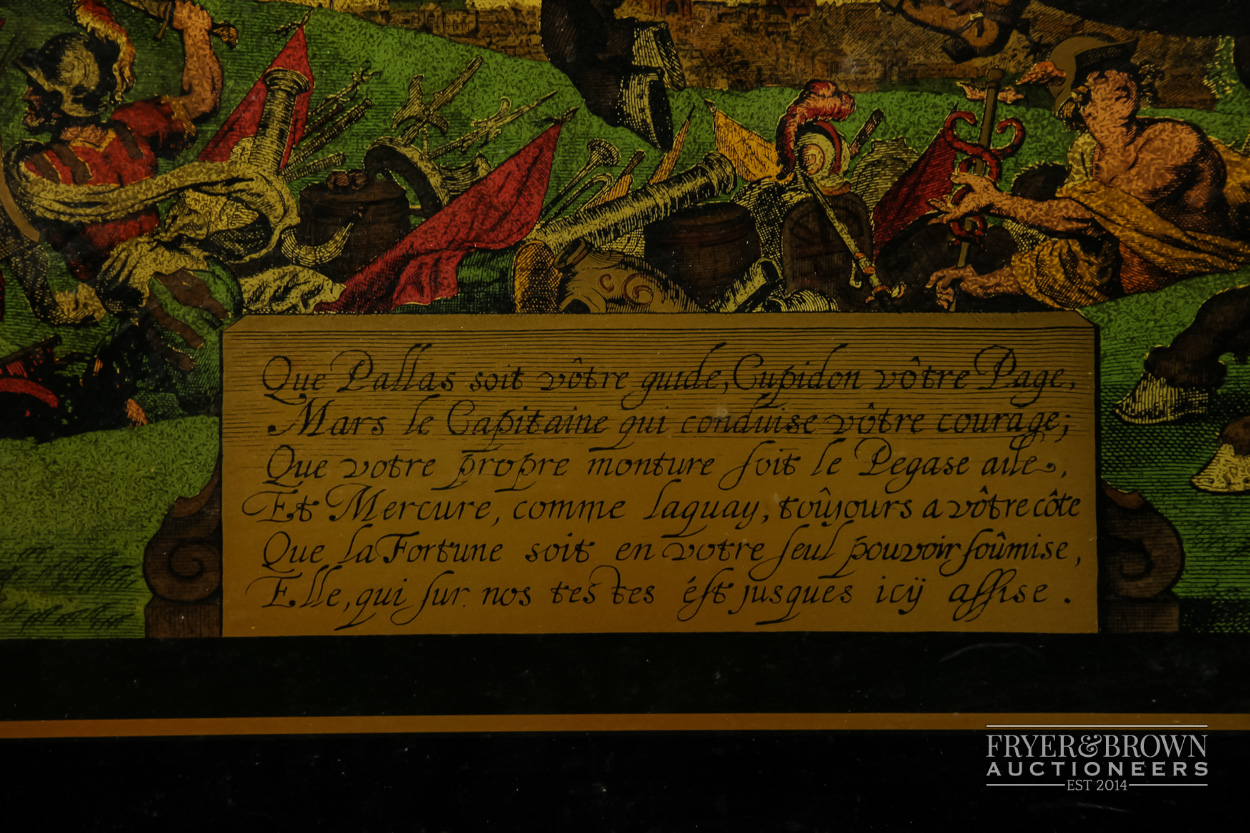 Que Pallas soit vôtre guide, Cupidon vôtre Page,
Mars le Capitaine qui conduise vôtre courage;
Que votre propre monture soit le Pegase aile,
Et Mercure, comme laquay, toûjours a vôtre côte
Que la Fortune soit en votre seul pouvoir soûmise,
Elle, qui sur nos testes ést jusques icÿ assise.
FRYER&BROWN
AUCTIONEERS
EST 2014